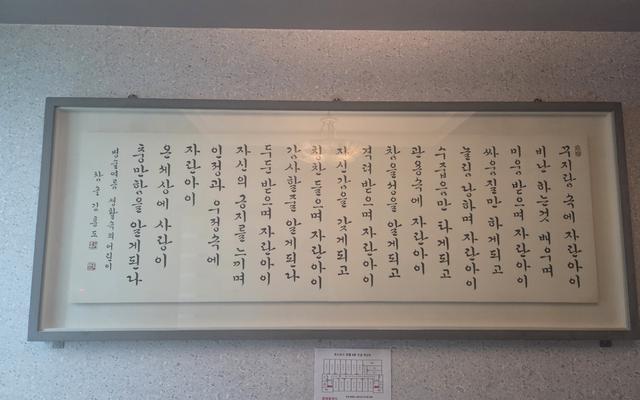 꾸지람 속에 자란 아이
비난 하는것 배우며
미움 받으며 자란아이
싸움질만 하게되고
놀림 당하며 자란아이
수줍음만 타게되고
관용속에 자란 아이
참을성을 알게되고
격려 받으며 자란아이
자신감을 갖게되고
칭찬 들으며 자란아이
감사할줄을 알게된다
두둔 받으며 자란아이
자신의 긍지를 느끼며
인정과 우정속에
자란 아이
온 세상에 사랑이
충만함을 알게된다
생활속의 어린이